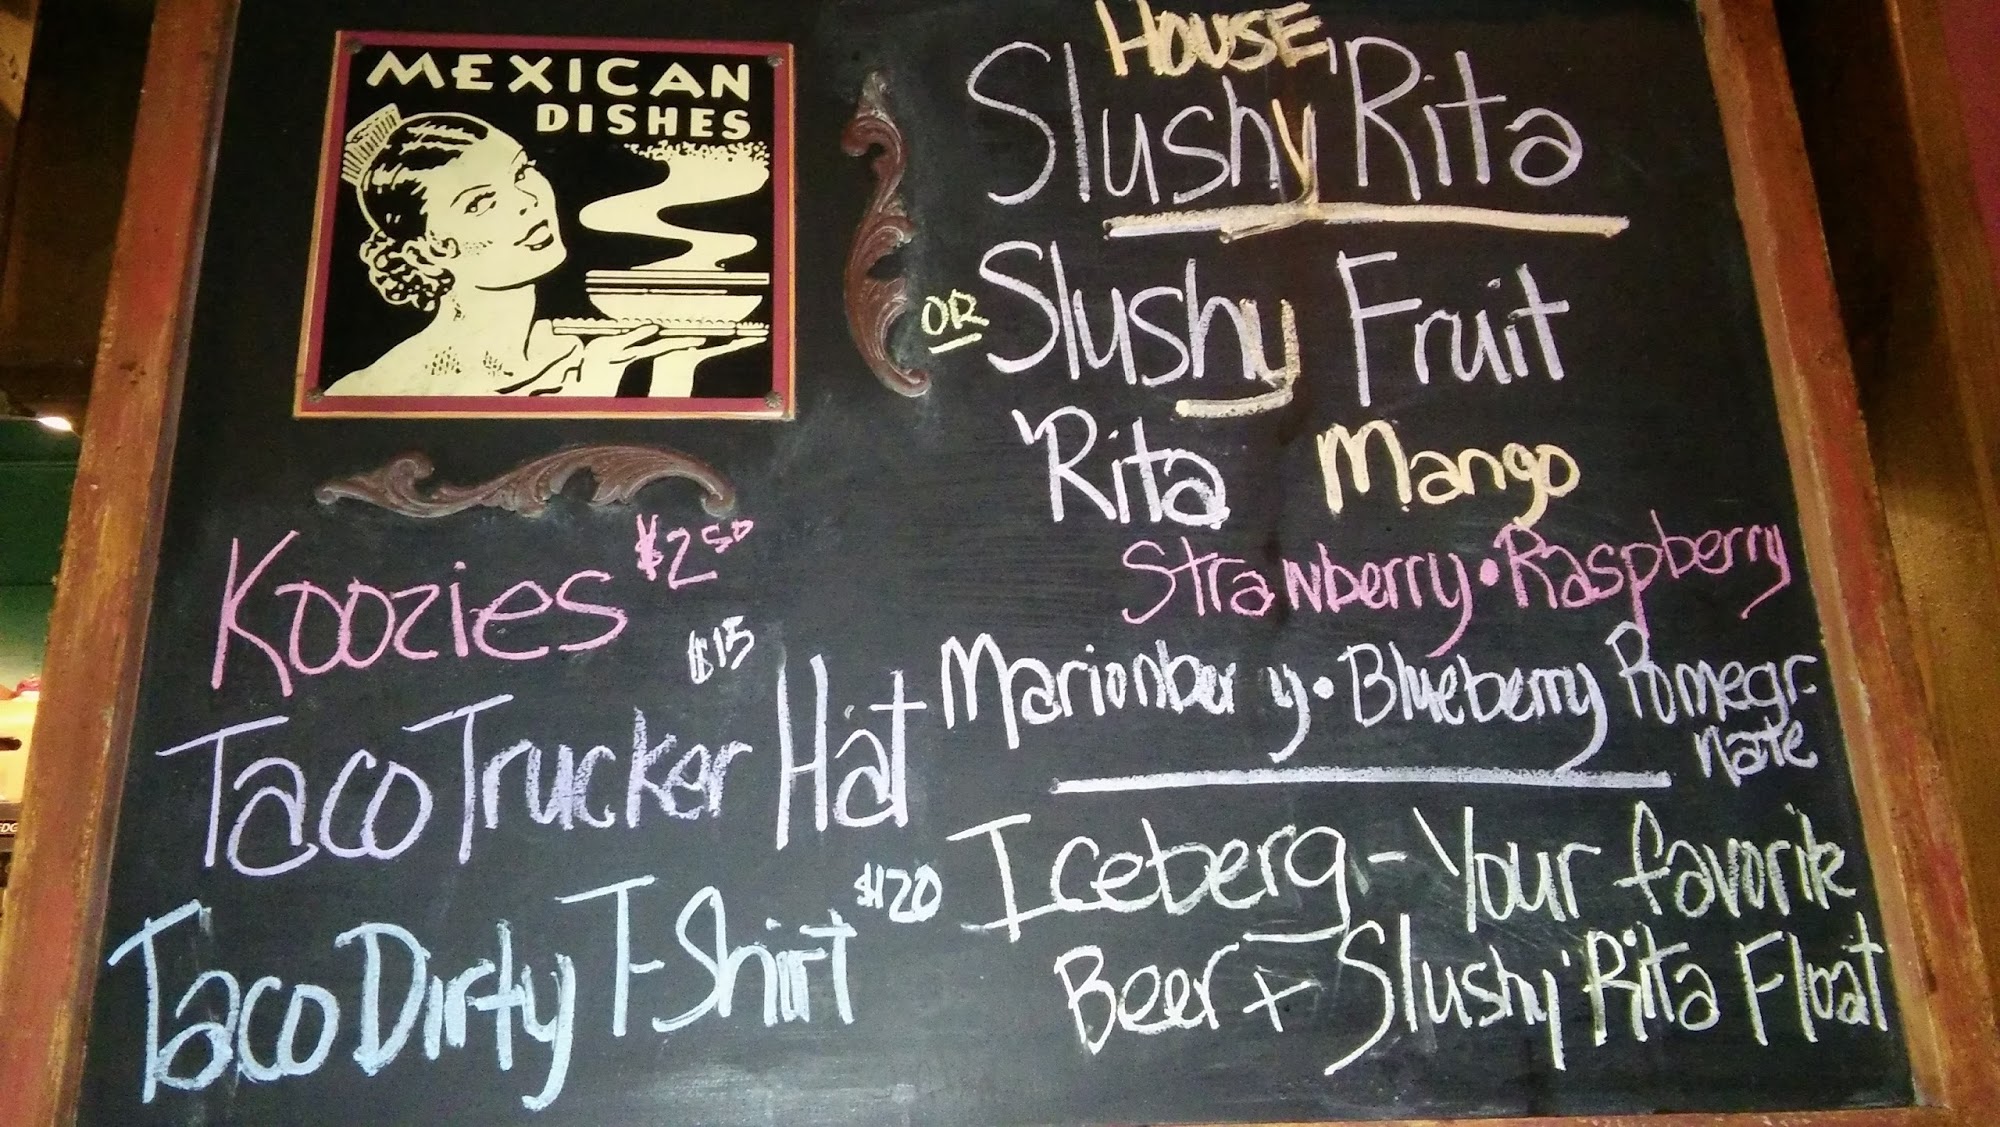 MEXICAN
DISHES
Koozies $2 50
$15
Taco Trucker Hat
Taco Dirty T-Shirt $20
HOUSE
Slushy 'Rita
OR Slushy Fruit
'Rita Mango
Strawberry • Raspberry
Marionberry • Blueberry Pomegr-
nate
Iceberg - Your favorite
Beer + Slushy 'Rita Float